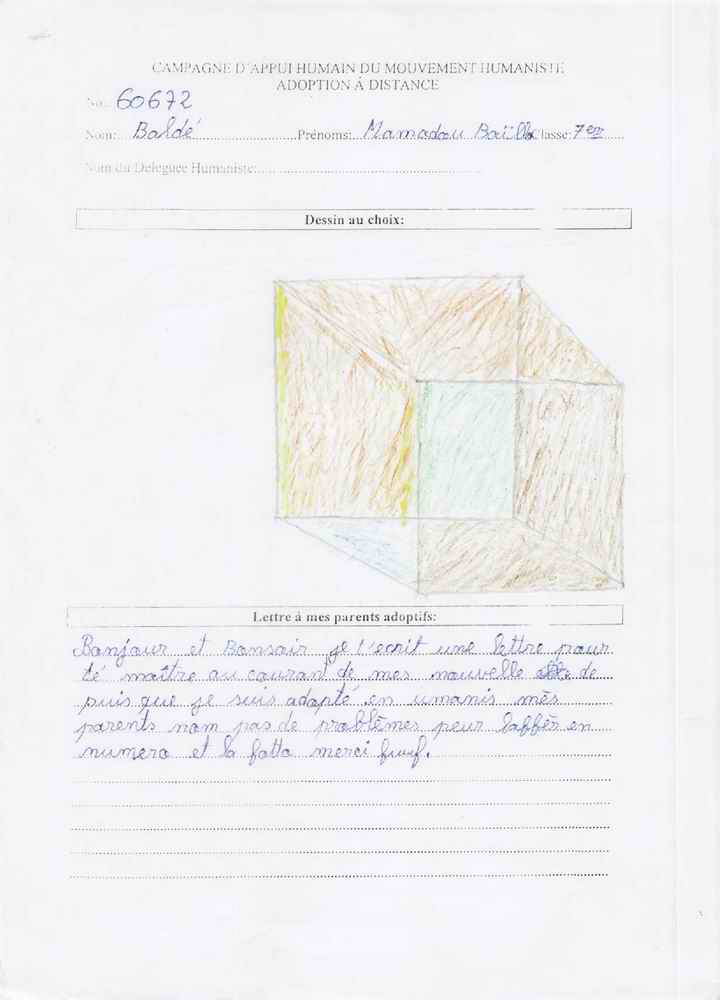 CAMPAGNE D'APPUI HUMAIN DU MOUVEMENT HUMANISTE
ADOPTION Á DISTANCE
No.: 60672
Nom: Baldé Prénoms: Mamadou Baïllo Classe: 7em
Nom du Deleguee Humaniste:
Dessin au choix:
Lettre à mes parents adoptifs:
Banjour et Bonsoir je t'ecrit une lettre pour
té maître au couran de mes nouvelle de
puis que je suis adopté en umanis mès
parents nom pas de problèmes peur laffèr en
numero et la fotto merci